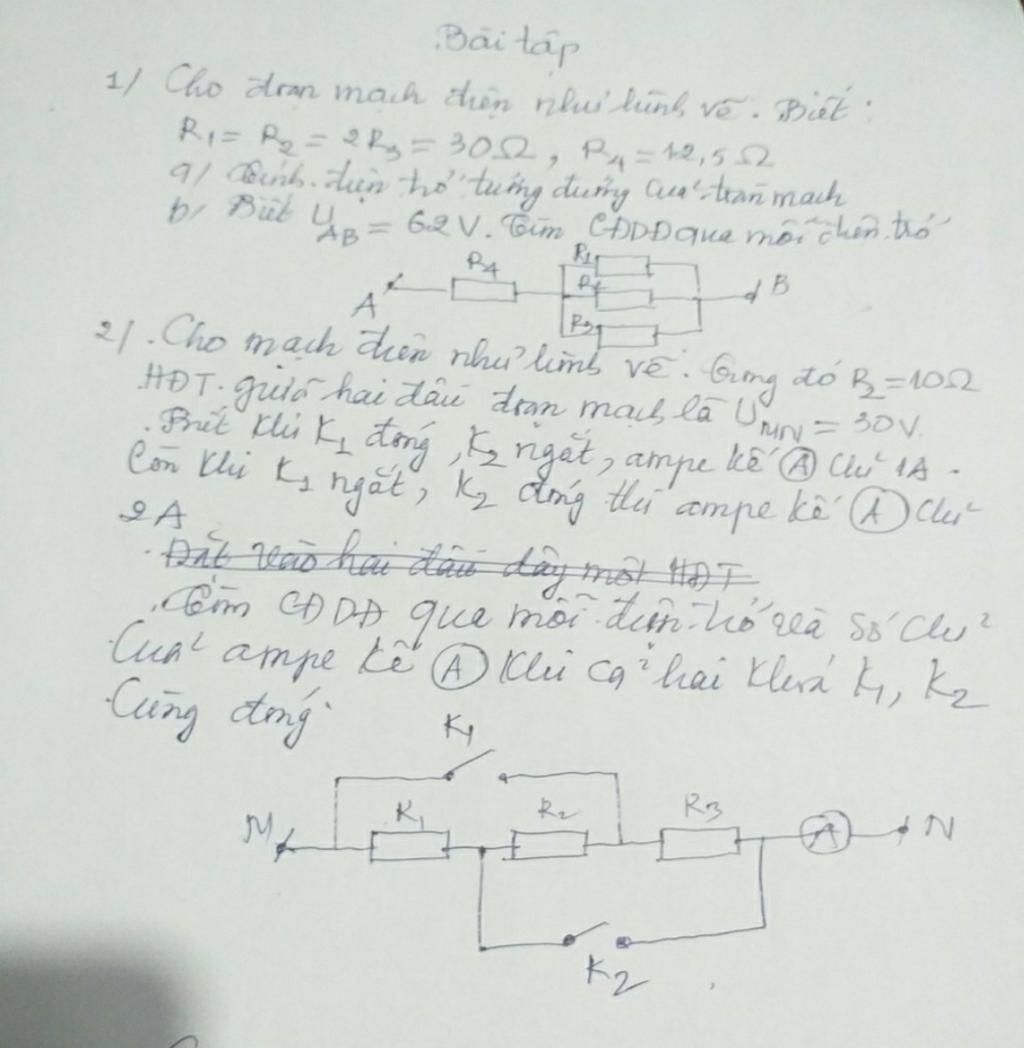 Bài tập
1/ Cho đoạn mạch điện như hình vẽ. Biết:
R1 = R2 = 2R3 = 30Ω, R4 = 12,5Ω
a/ Tính điện trở tương đương của đoạn mạch
b/ Biết UAB = 62V. Tìm CĐDĐ qua mỗi điện trở
A R4 R1 R2 R3 B
2/. Cho mạch điện như hình vẽ. Trong đó R2 = 10Ω
HĐT giữa hai đầu đoạn mạch là UMN = 30V.
Biết khi K1 đóng, K2 ngắt, ampe kế A chỉ 1A.
Còn khi K1 ngắt, K2 đóng thì ampe kế A chỉ
2A
Đặt vào hai đầu dây một HĐT
Tìm CĐDĐ qua mỗi điện trở và số chỉ
của ampe kế A khi cả hai khoá K1, K2
cùng đóng.
K1
M R1 R2 R3 A N
K2